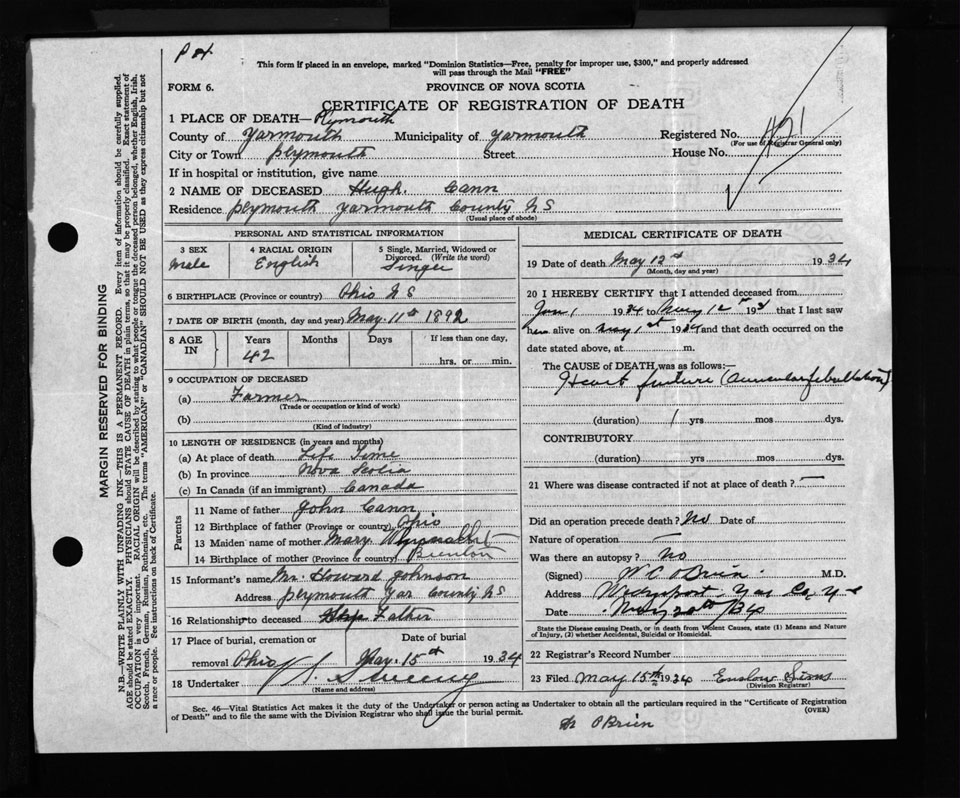 P 21
This form if placed in an envelope, marked "Dominion Statistics—Free, penalty for improper use, $300," and properly addressed
will pass through the Mail "FREE"
FORM 6.
PROVINCE OF NOVA SCOTIA
CERTIFICATE OF REGISTRATION OF DEATH
1 PLACE OF DEATH— Plymouth
County of Yarmouth Municipality of Yarmouth Registered No.
(For use of Registrar General only)
City or Town Plymouth Street House No.
If in hospital or institution, give name
2 NAME OF DECEASED Hugh. Cann
Residence Plymouth Yarmouth County N S
(Usual place of abode)
PERSONAL AND STATISTICAL INFORMATION
3 SEX 4 RACIAL ORIGIN 5 Single, Married, Widowed or
Divorced. (Write the word)
Male English Single
6 BIRTHPLACE (Province or country) Ohio N S
7 DATE OF BIRTH (month, day and year) May. 11th 1892
8 AGE IN Years Months Days If less than one day,
42 hrs. or min.
9 OCCUPATION OF DECEASED
(a) Farmer
(Trade or occupation or kind of work)
(b)
(Kind of industry)
10 LENGTH OF RESIDENCE (in years and months)
(a) At place of death Life Time
(b) In province Nova Scotia
(c) In Canada (if an immigrant) Canada
Parents
11 Name of father John Cann
12 Birthplace of father (Province or country) Ohio
13 Maiden name of mother Mary.
14 Birthplace of mother (Province or country) Brenton
15 Informant's name Mr. Howard Johnson
Address Plymouth Yar County N S
16 Relationship to deceased Step Father
17 Place of burial, cremation or Date of burial
removal Ohio May. 15th 1934
18 Undertaker Sweeny
(Name and address)
MEDICAL CERTIFICATE OF DEATH
19 Date of death May 12th 1934
(Month, day and year)
20 I HEREBY CERTIFY that I attended deceased from
Jan 1 1934 to May 12th 193 that I last saw
him alive on May 1st 1934 and that death occurred on
date stated above, at m.
The CAUSE of DEATH was as follows:—
Heart failure (Auricular febullation)
(duration) 1 yrs mos dys.
CONTRIBUTORY
(duration) yrs mos dys.
21 Where was disease contracted if not at place of death? —
Did an operation precede death? No Date of
Nature of operation —
Was there an autopsy? No
(Signed) W. C. O'Brien M.D.
Address Wedgeport Yar Co.
Date May 20th/34
State the Disease causing Death, or in death from Violent Causes, state (1) Means and Nature
of Injury, (2) whether Accidental, Suicidal or Homicidal.
22 Registrar's Record Number
23 Filed May 15th 1934 Enslow Sims
(Division Registrar)
Sec. 46—Vital Statistics Act makes it duty of the Undertaker or person acting as Undertaker to obtain all the particulars required in the "Certificate of Registration
of Death" and to file the same with the Division Registrar who shall issue the burial permit.
(OVER)
Dr O'Brien
MARGIN RESERVED FOR BINDING
N.B.—WRITE PLAINLY WITH UNFADING INK—THIS IS A PERMANENT RECORD. Every item of information should be carefully supplied.
AGE should be stated EXACTLY. PHYSICIANS should STATE CAUSE OF DEATH in plain terms, so that it may be properly classified. Exact statement of
OCCUPATION is very important. RACIAL ORIGIN will be described by stating to what people or tongue the deceased person belonged, whether English, Irish,
Scotch, French, German, Russian, Ruthenian, etc. The terms "AMERICAN" or "CANADIAN" SHOULD NOT BE USED as they express citizenship but not
a race or people. See instructions on back of Certificate.